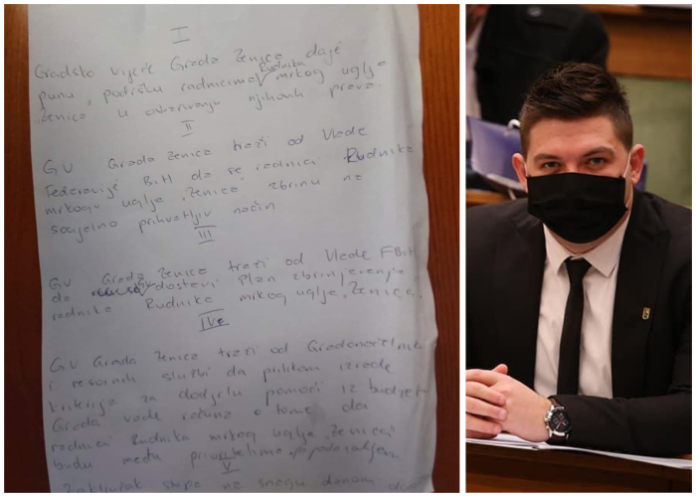 I
Gradsko vijeće Grada Zenica daje
punu podršku radnicima Rudnika mrkog uglja
"Zenica" u ostvarivanju njihovih prava.
II
GV Grada Zenica traži od Vlade
Federacije BiH da se radnici Rudnika
mrkog uglja "Zenica" zbrinu na
socijalno prihvatljiv način
III
GV Grada Zenica traži od Vlade FBiH
da dostavi Plan zbrinjavanja
radnika Rudnika mrkog uglja "Zenica".
IV
GV Grada Zenica traži od Gradonačelnika
i resornih službi da prilikom izrade
kriterija za dodjelu pomoći iz budžeta
Grada vode računa o tome da
radnici Rudnika mrkog uglja "Zenica"
budu među prioritetnim
V
Zaključak stupa na snagu danom